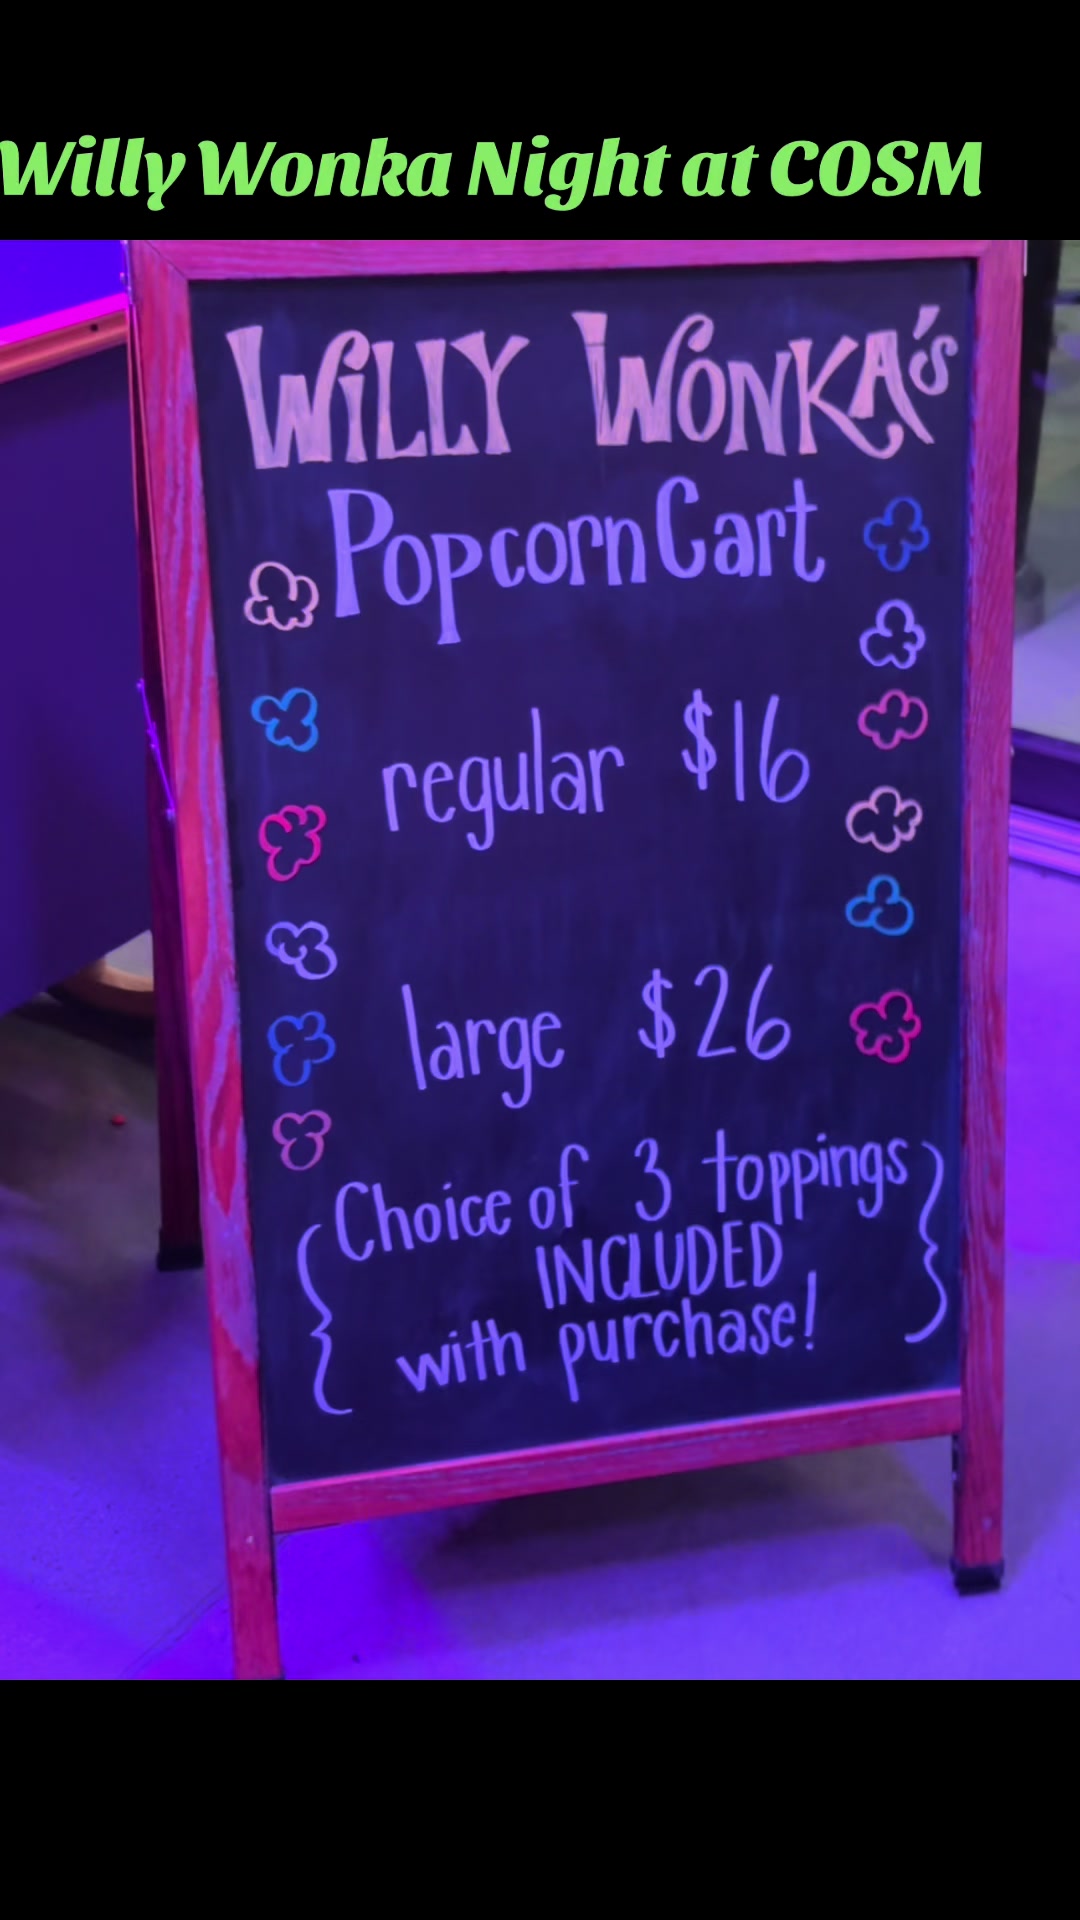 Willy Wonka Night at COSM
WiLLY WONKA's
Popcorn Cart
regular $16
large $26
{Choice of 3 toppings}
INCLUDED
with purchase!